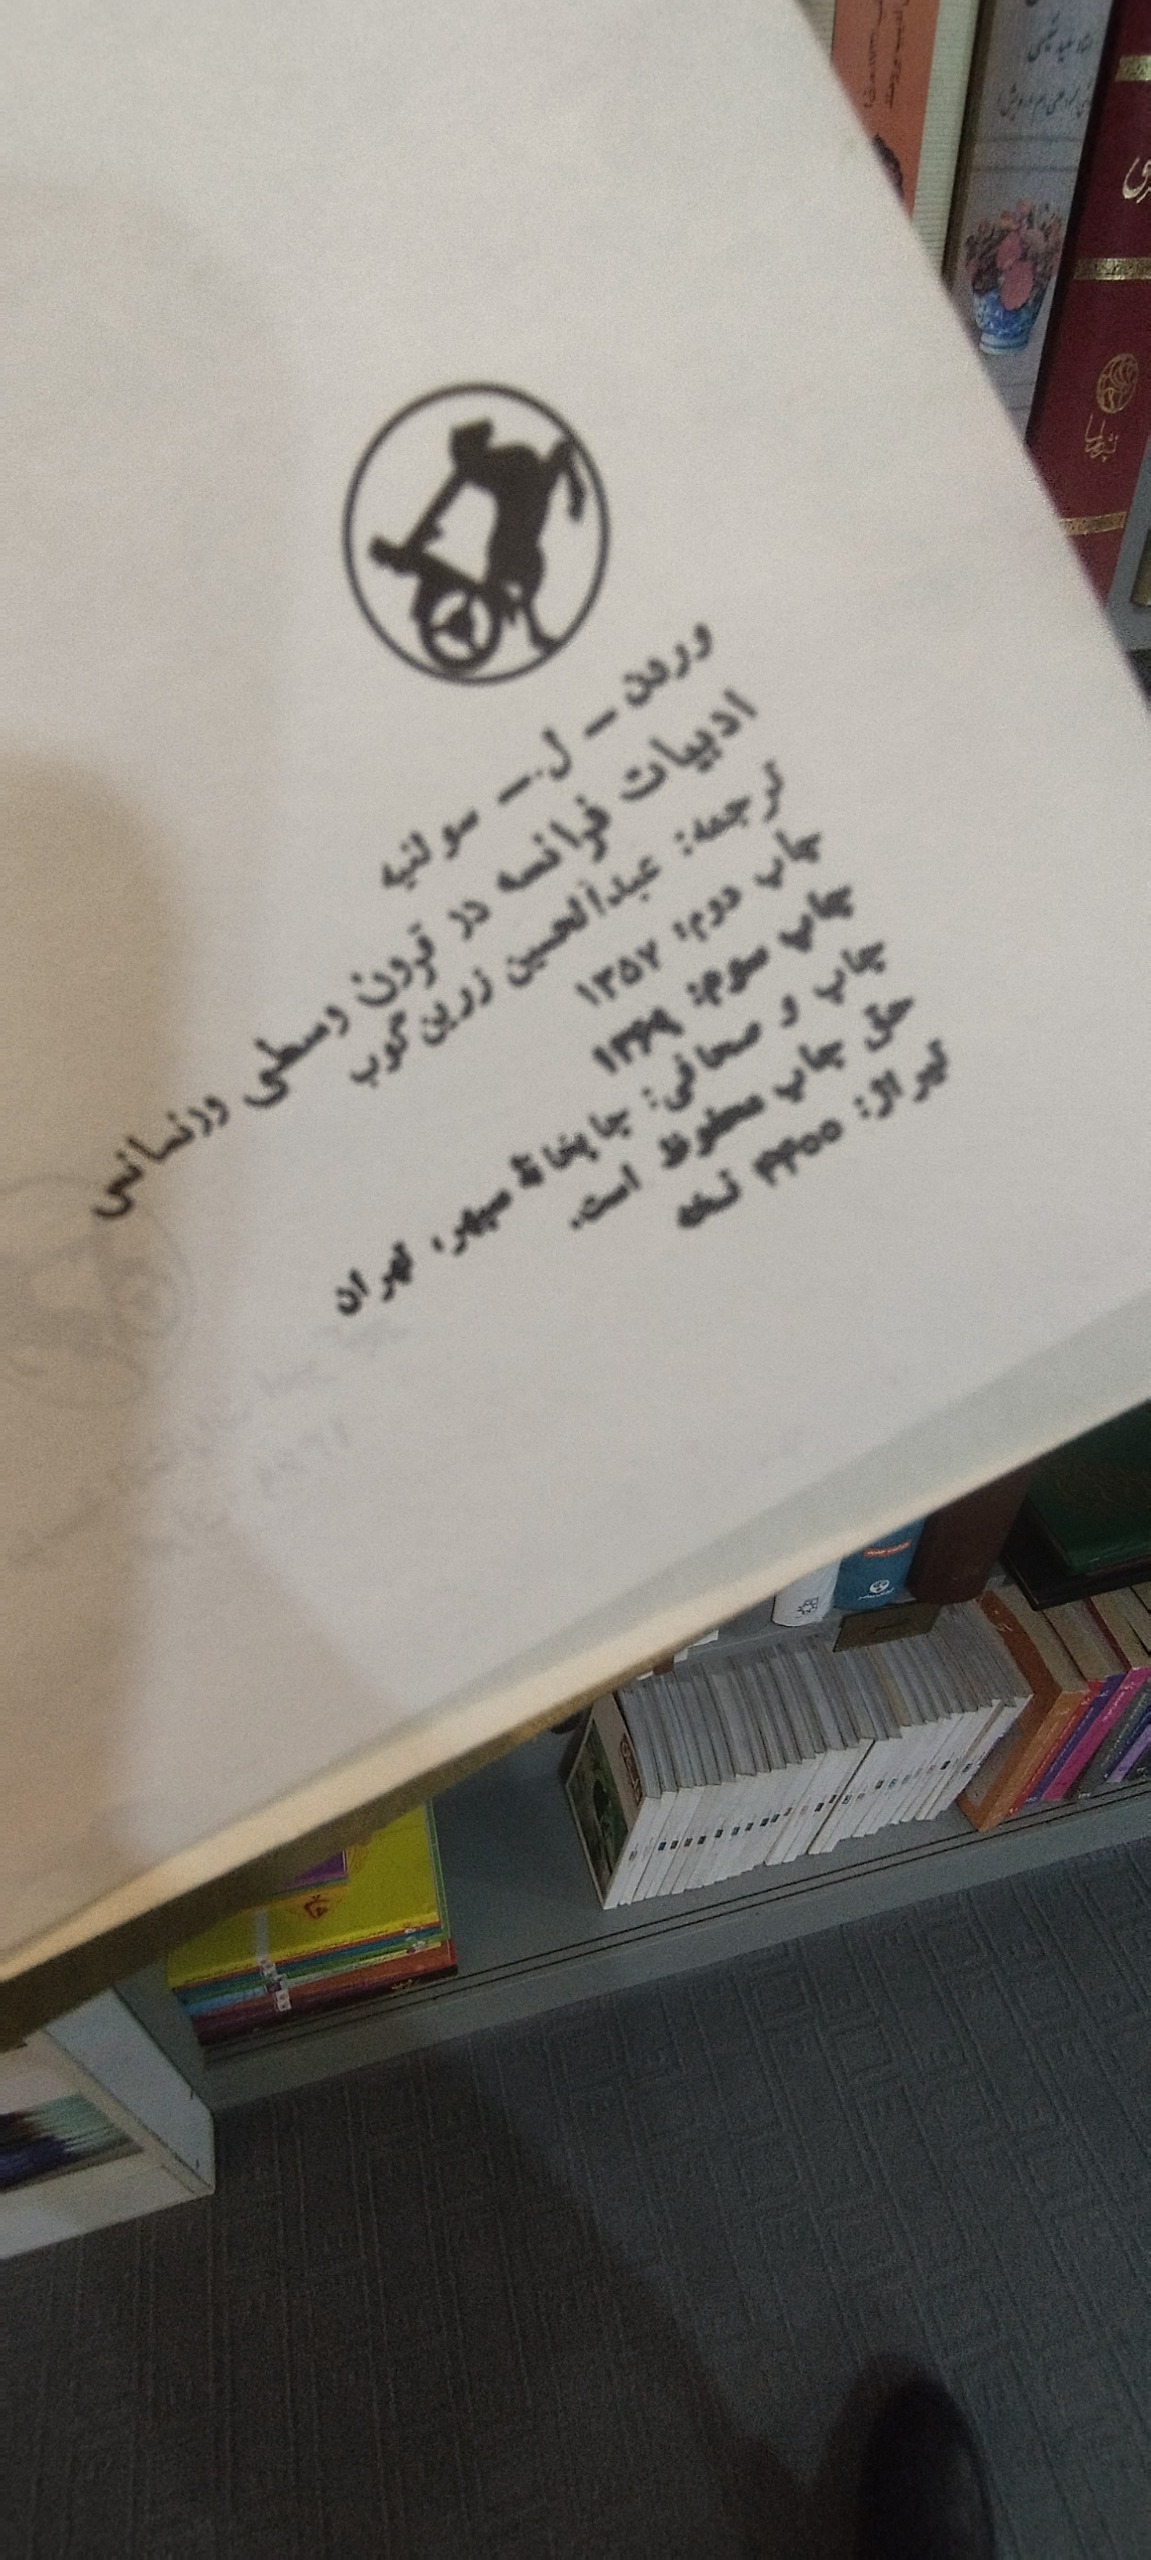 وردن - ل. - سولنیه
ادبیات فرانسه در قرون وسطی ورنسانس
ترجمه: عبدالحسین زرین‌کوب
چاپ دوم: ۱۳۵۷
چاپ سوم:
چاپ و صحافی: چاپخانهٔ سپهر، تهران
حق چاپ محفوظ است.
تیراژ: ۴۴۰۰ نسخه